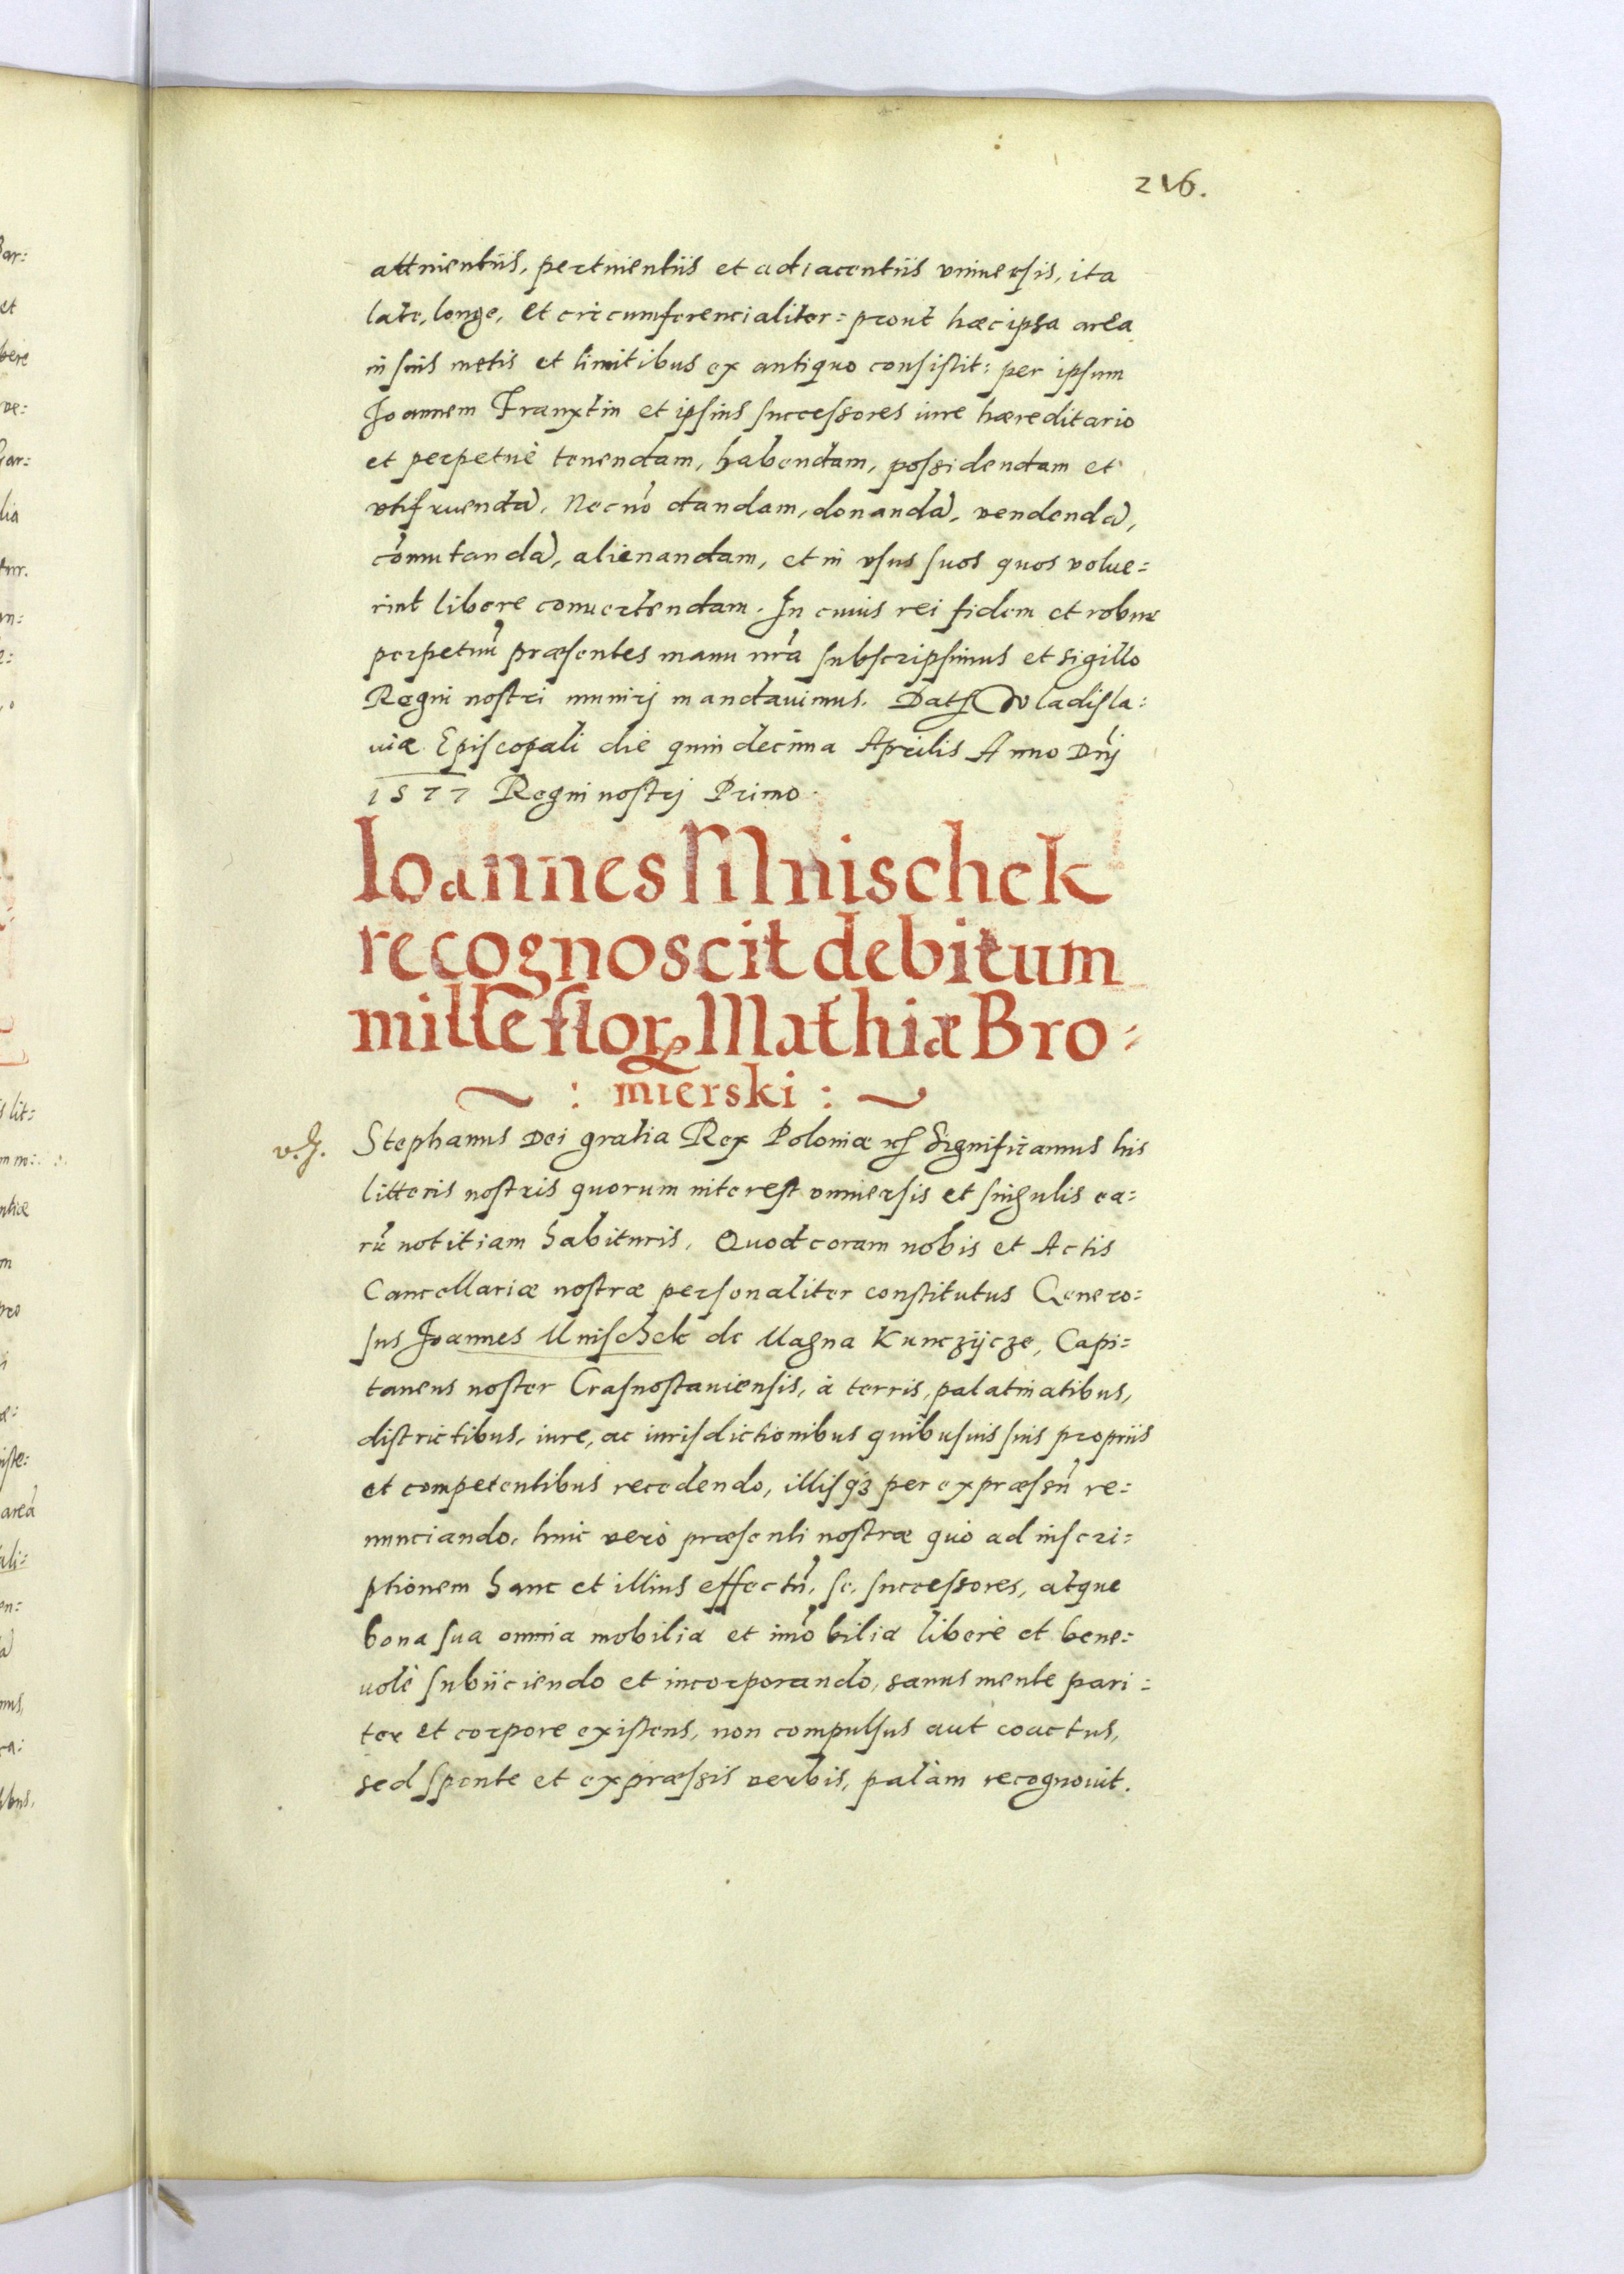 216.
attinentiis, pertinentiis et adiacentiis vniuersis, ita
late, longe, et circumferencialiter: prout hæc ipsa area
in suis metis et limitibus ex antiquo consistit: per ipsum
Joannem Franxtin et ipsius successores iure hæreditario
et perpetuè tenendam, habendam, possidendam et
vtifruendã, Necnõ dandam, donandã, vendendã,
cõmutandã, alienandam, et in vsus suos quos volue=
rint libere conuertendam. In cuius rei fidem et robur
perpetuũ præsentes manu nr̃a subscripsimus et sigillo
Regni nostri munirj mandauimus. Datꝭ Wladisla:
uiæ Episcopali die quindecima Aprilis Anno Dn̄j
1577 Regni nostrj Primo.
Ioannes Mnischek
recognoscit debitum
mille florꝝ Mathiæ Bro=
: mierski :
Stephanus Dei gratia Rex Poloniæ ꝛcꝭ Significamus his
litteris nostris quorum interest vniuersis et singulis ea:
rũ notitiam habituris, Quod coram nobis et Actis
Cancellariæ nostræ personaliter constitutus Genero:
sus Joannes Mnischek de Magna Kunczijcze, Capi=
taneus noster Crasnostauiensis, à terris, palatinatibus,
districtibus, iure, ac iurisdictionibus quibusuis suis proprijs
et competentibus recedendo, illisqꝫ per expræssũ re:
nunciando, huic verò præsenti nostræ quò ad inscri=
ptionem hanc et illius effectũ, se, successores, atque
bona sua omnia mobilia et im̃obilia liberè et bene:
uolè subiiciendo et incorporando, sanus mente pari:
ter et corpore existens, non compulsus aut coactus,
sed sponte et expræssis verbis, palàm recognouit.